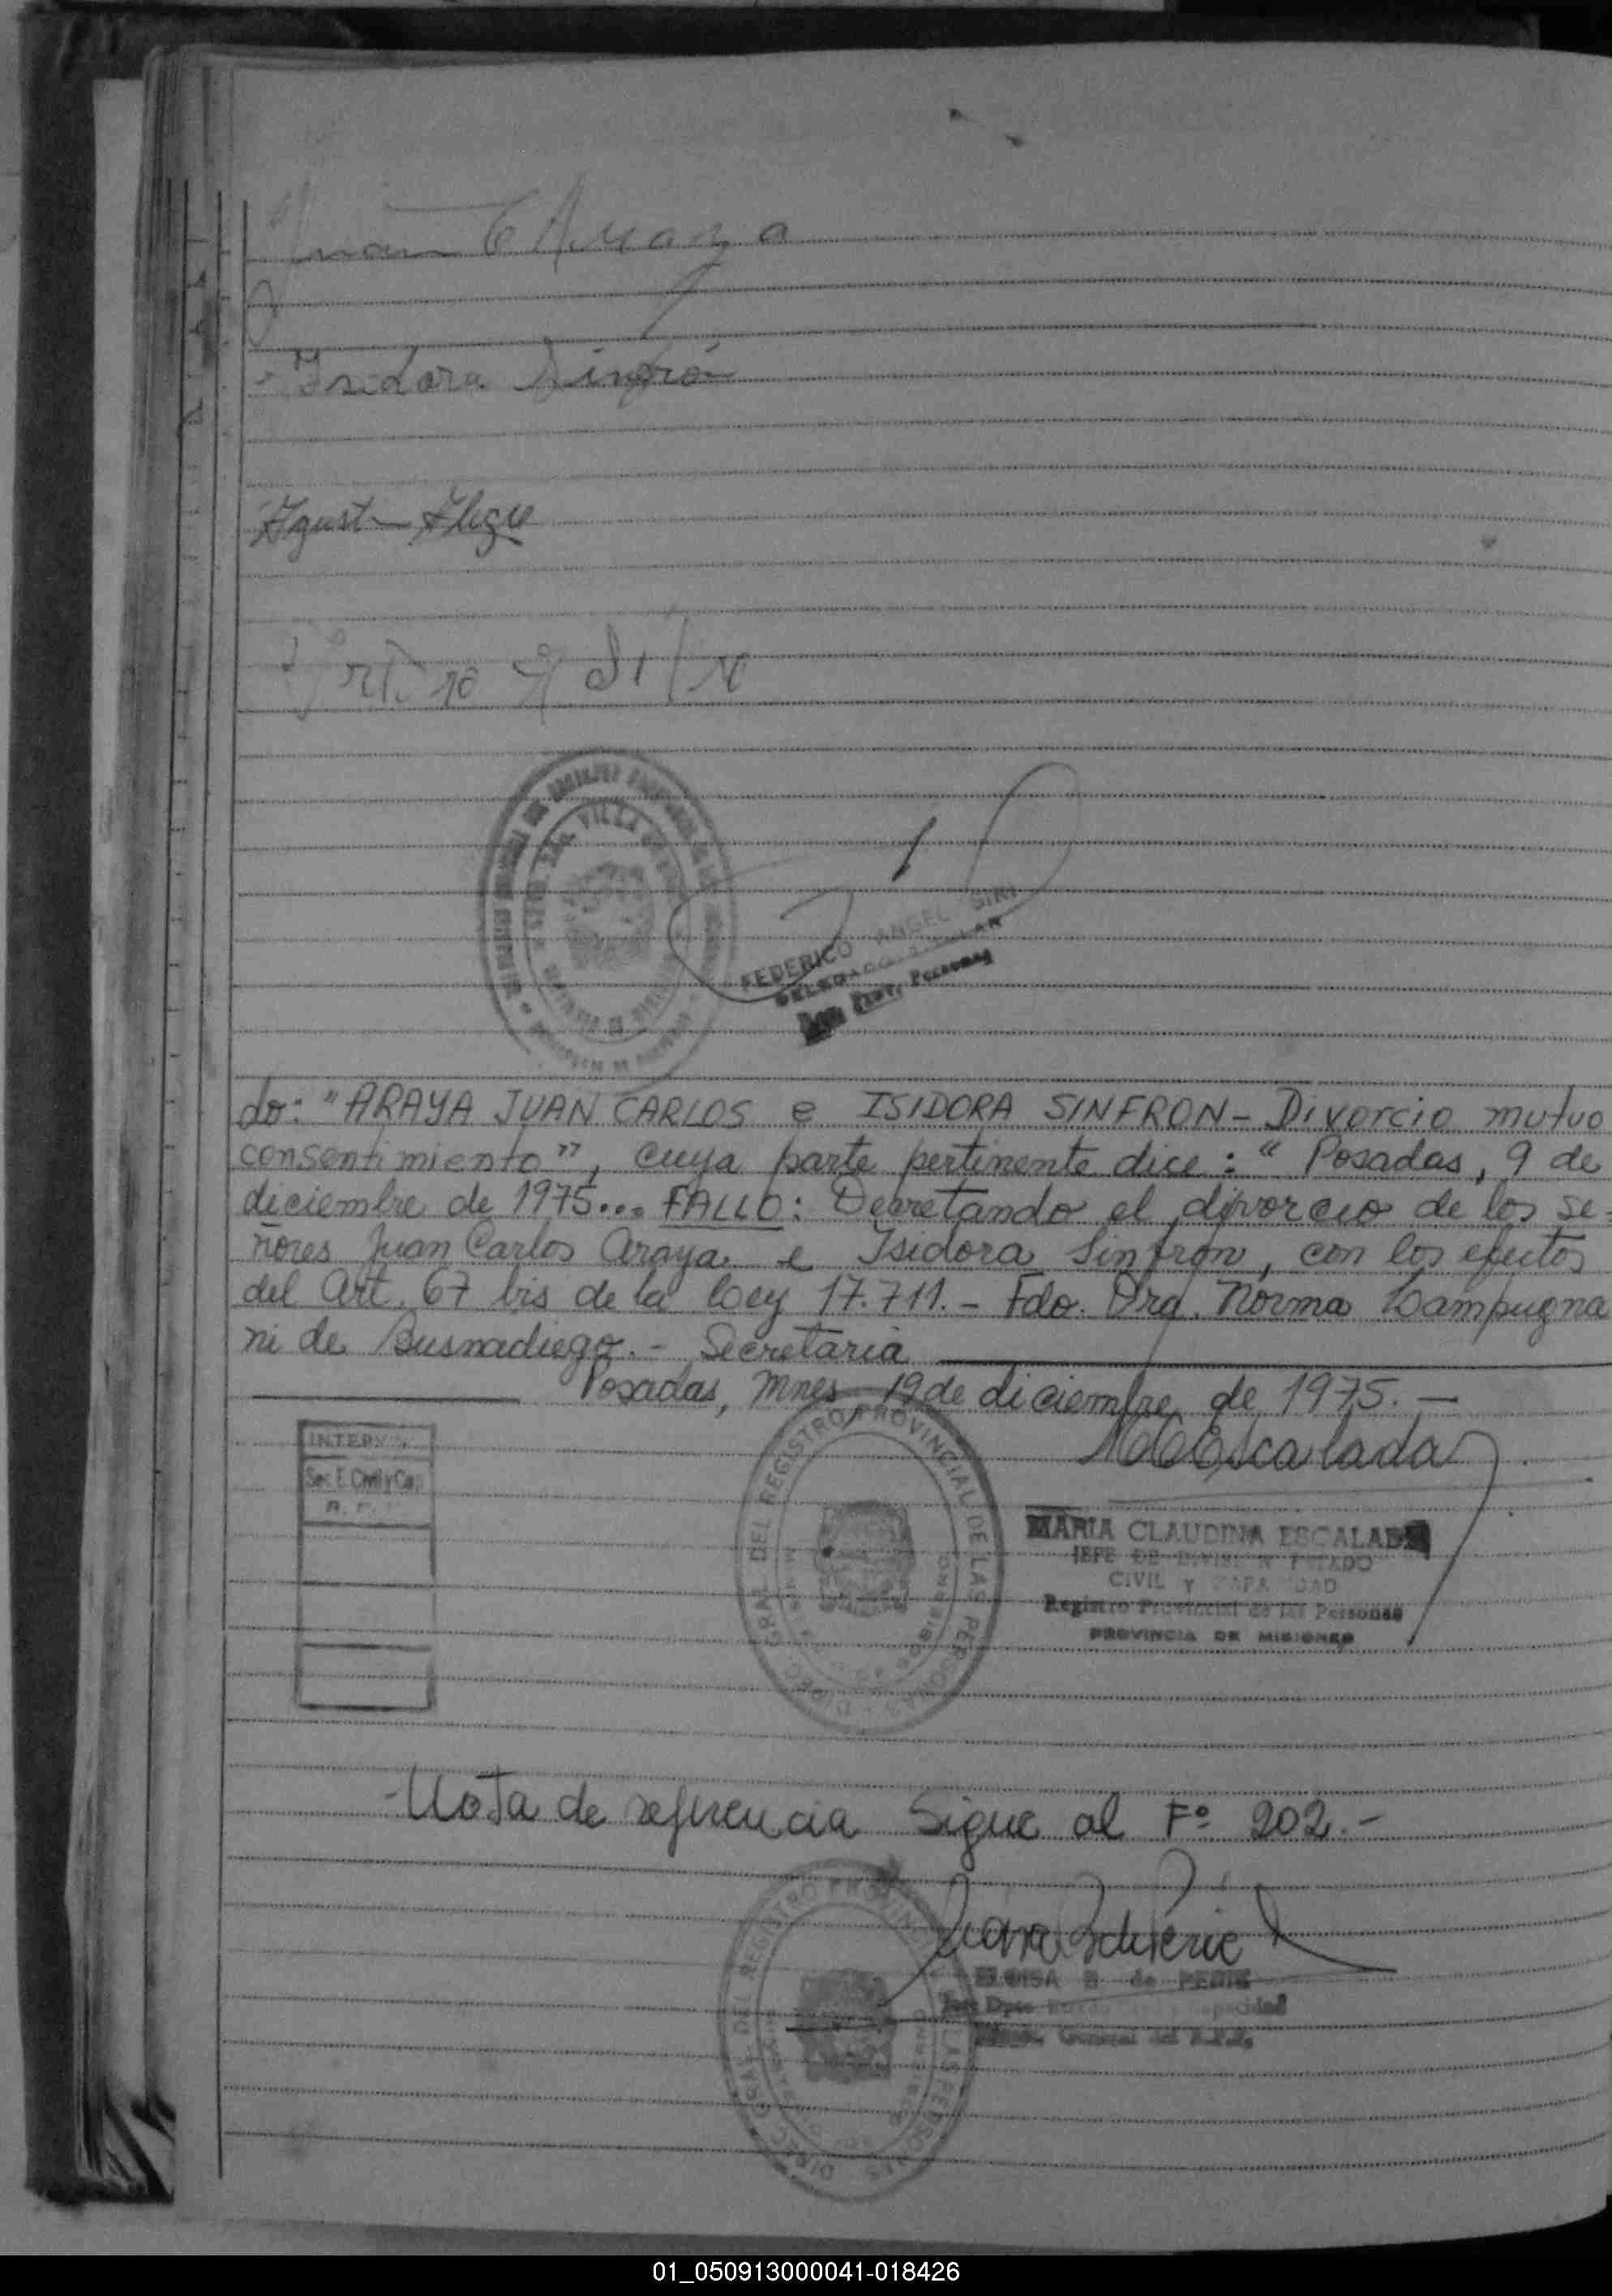 Juan C Araya
Isidora Sinfrón
Agustin Alegre
VILLA
FEDERICO ANGEL SIRI
DELEGADO TITULAR
Prov. Personas
do: "ARAYA JUAN CARLOS e ISIDORA SINFRON - Divorcio mutuo
consentimiento", cuya parte pertinente dice: "Posadas, 9 de
diciembre de 1975... FALLO: Decretando el divorcio de los se-
ñores Juan Carlos Araya e Isidora Sinfron, con los efectos
del Art. 67 bis de la ley 17.711.- Fdo. Dra. Norma Lampugna
ni de Busnadiego.- Secretaria
Posadas, Mnes 19 de diciembre de 1975.-
Escalada
INTERV
Sec. E. Civil y Cap.
DIREC. GRAL. DEL REGISTRO PROVINCIAL DE LAS PERSONAS
MARIA CLAUDINA ESCALADA
JEFE DE DIVISION ESTADO
CIVIL Y CAPACIDAD
Registro Provincial de las Personas
PROVINCIA DE MISIONES
-Nota de referencia Sigue al Fº 202.-
DIREC. GRAL. DEL REGISTRO PROVINCIAL DE LAS PERSONAS
ELOISA B de PERIE
Jefe Dpto Estado Civil y Capacidad
General del R.P.P.
01_050913000041-018426